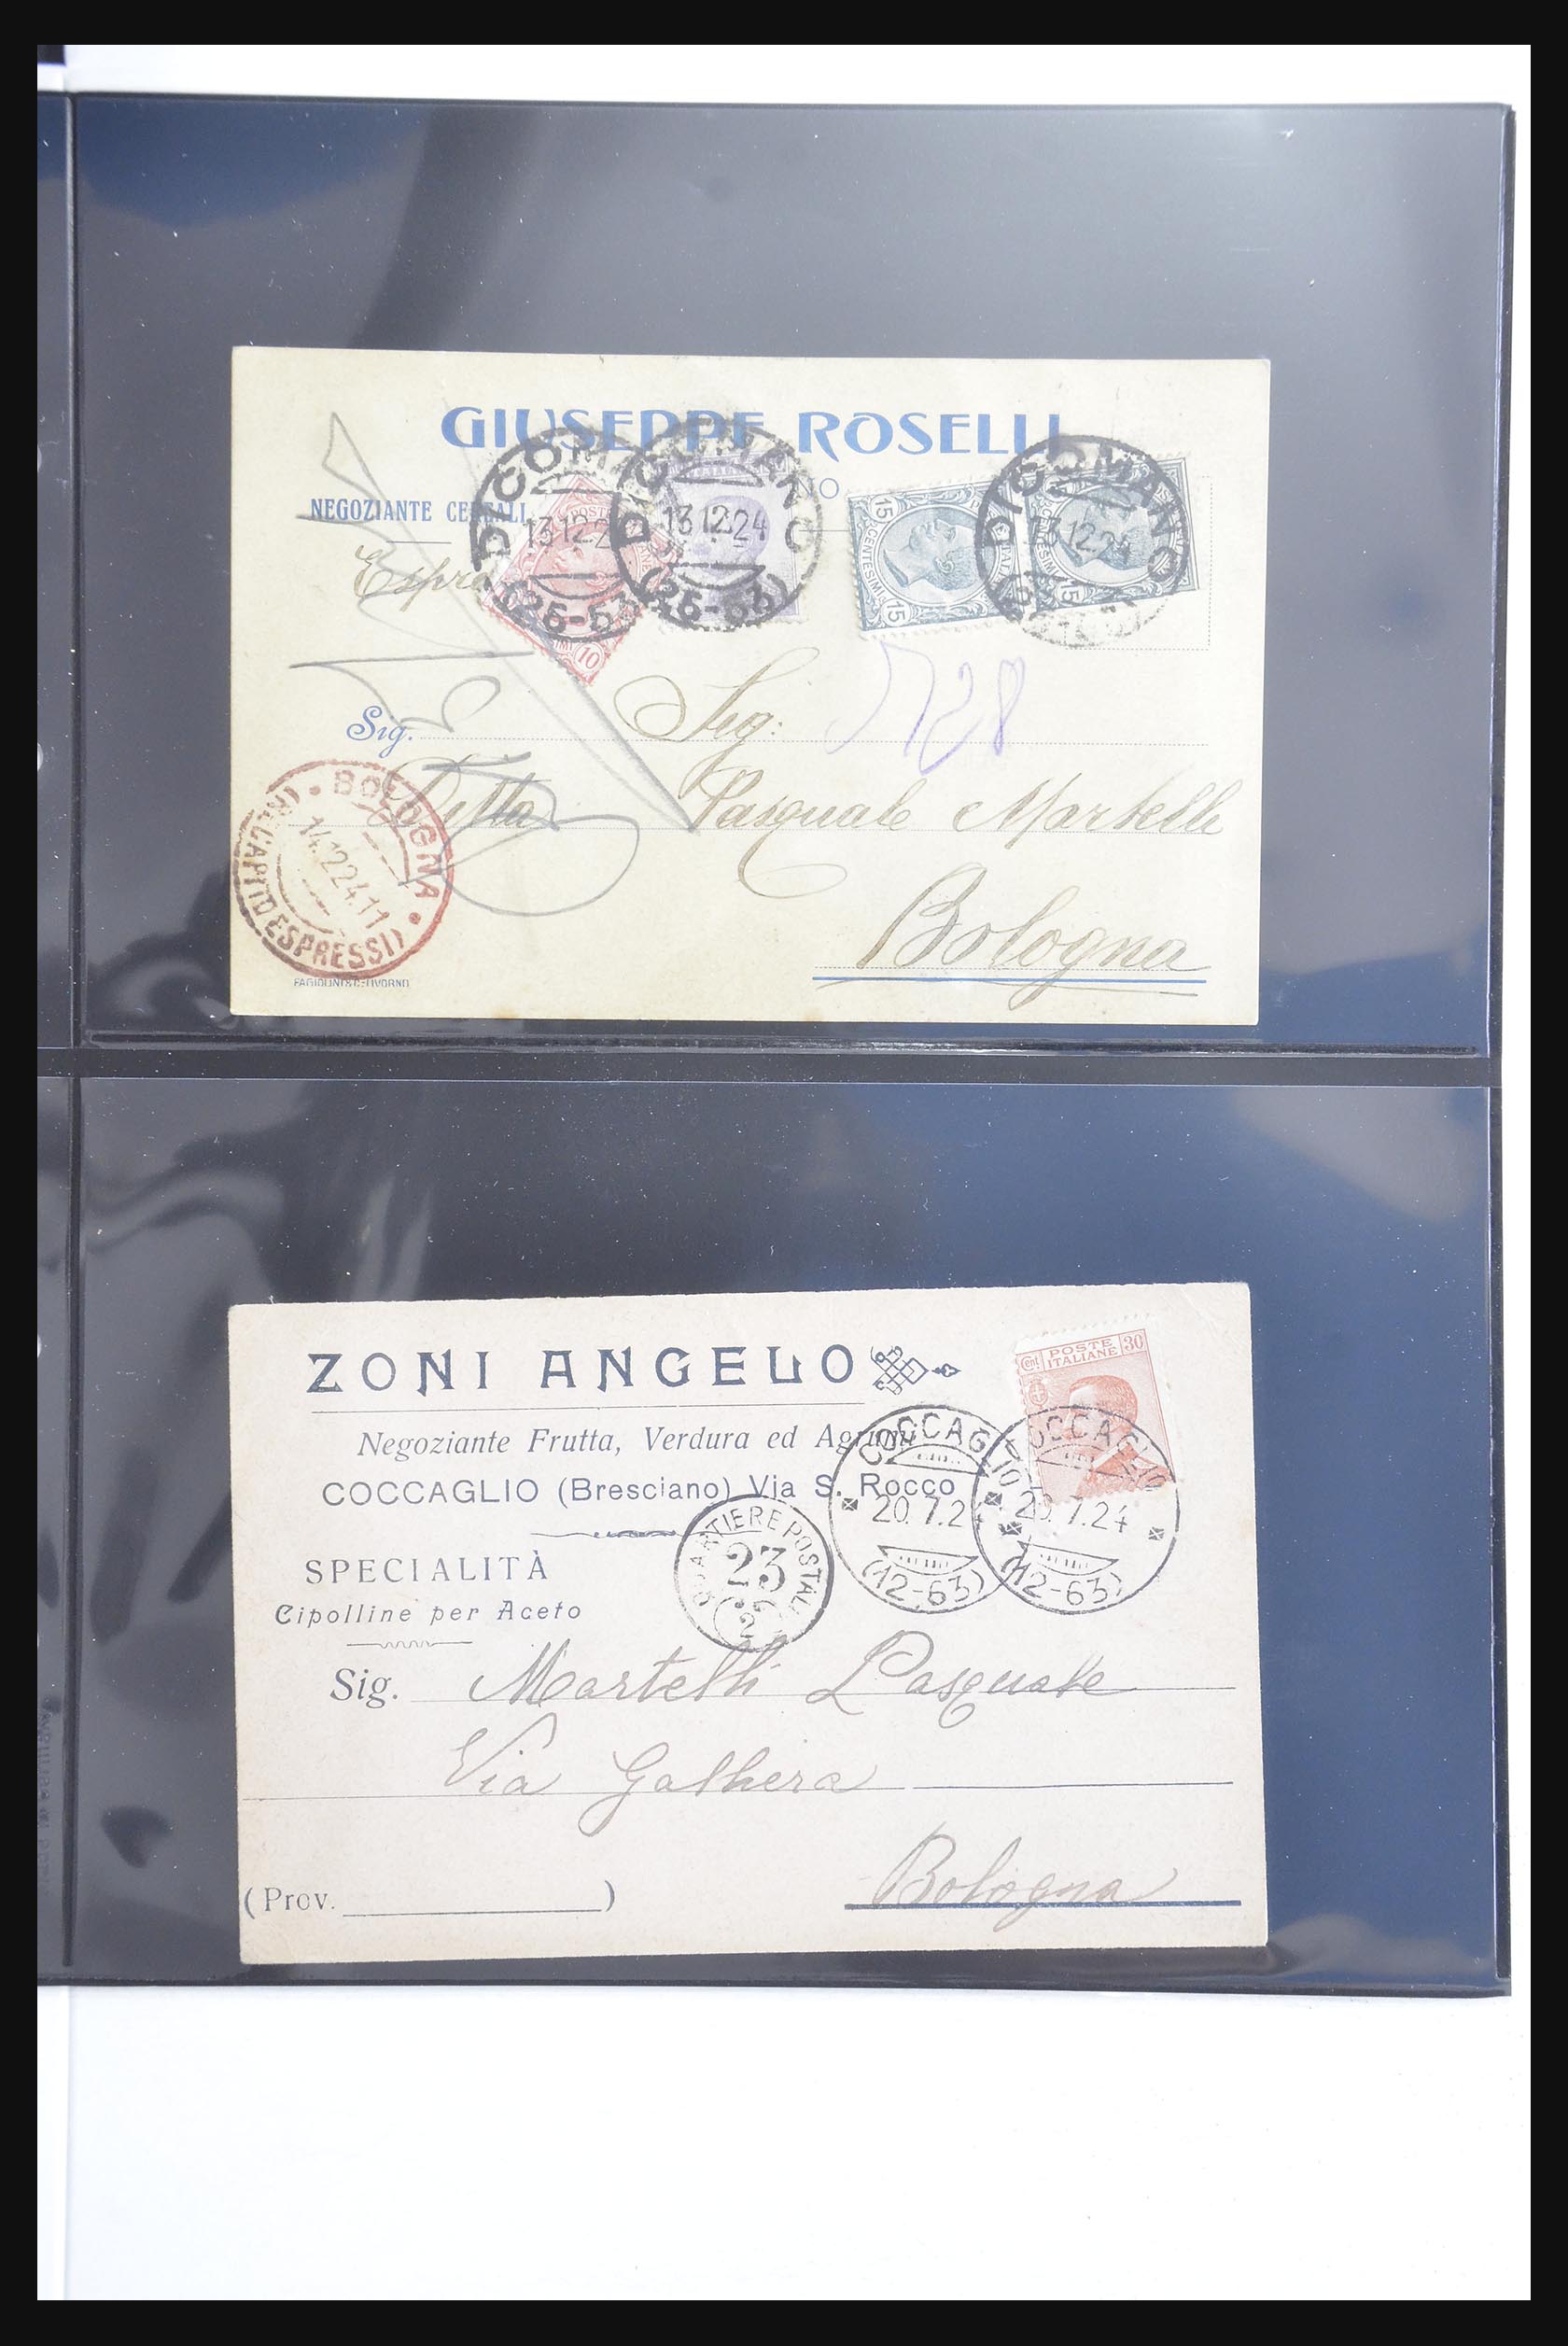 GIUSEPPE ROSELLI
NO
NEGOZIANTE CEREALI
DICOMANO
13.12.24
(26-63)
DICOMANO
13.12.24
(26-63)
DICOMANO
13.12.24
15 CENTESIMI 15
15
10
Sig:
728
Sig.
Ditta Pasquale Martelli
Bologna
BOLOGNA
14.12.24.11
(RECAPITO ESPRESSI)
FAGIOLINI & C.-LIVORNO
ZONI ANGELO
Cent POSTE ITALIANE 30
Negoziante Frutta, Verdura ed Agrumi
COCCAGLIO (Bresciano) Via S. Rocco
COCCAGLIO
20.7.24
(12-63)
COCCAGLIO
20.7.24
(12-63)
QUARTIERE POSTALE
23
(2)
SPECIALITÀ
Cipolline per Aceto
Sig. Martelli Pasquale
Via Galliera
Bologna
(Prov. )